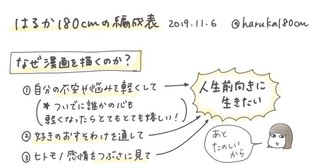 はるか180cmの編成表 2019.11.6 @haruka180cm
なぜ漫画を描くのか？
①自分の不安や悩みを軽くして
(*ついでに誰かの心も
軽くなったらとてもとても嬉しい！)
②好きのおすそわけを通して
③ヒト・モノ・感情をつぶさに見て
人生前向きに
生きたい
あと
たのしい
から